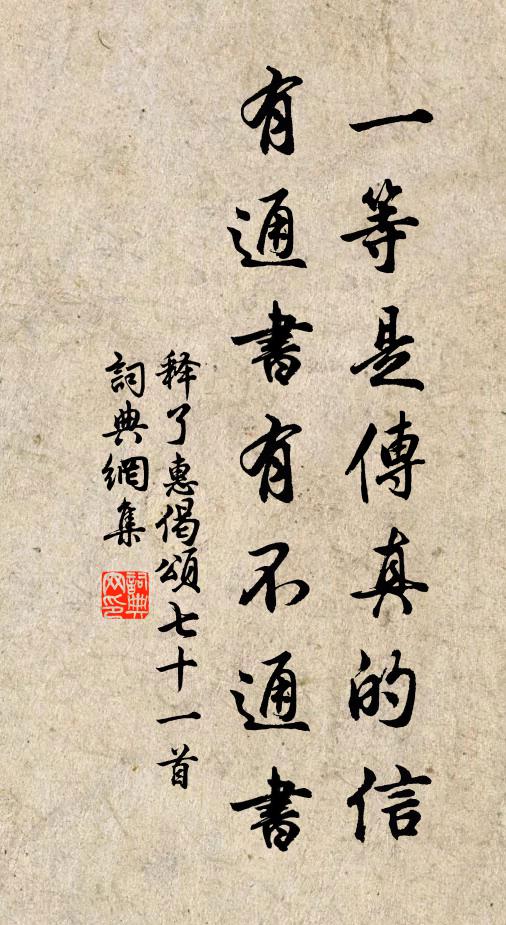 一等是傳真的信
有通書有不通書
释了惠偈頌七十一首
詞典網集
詞典网印